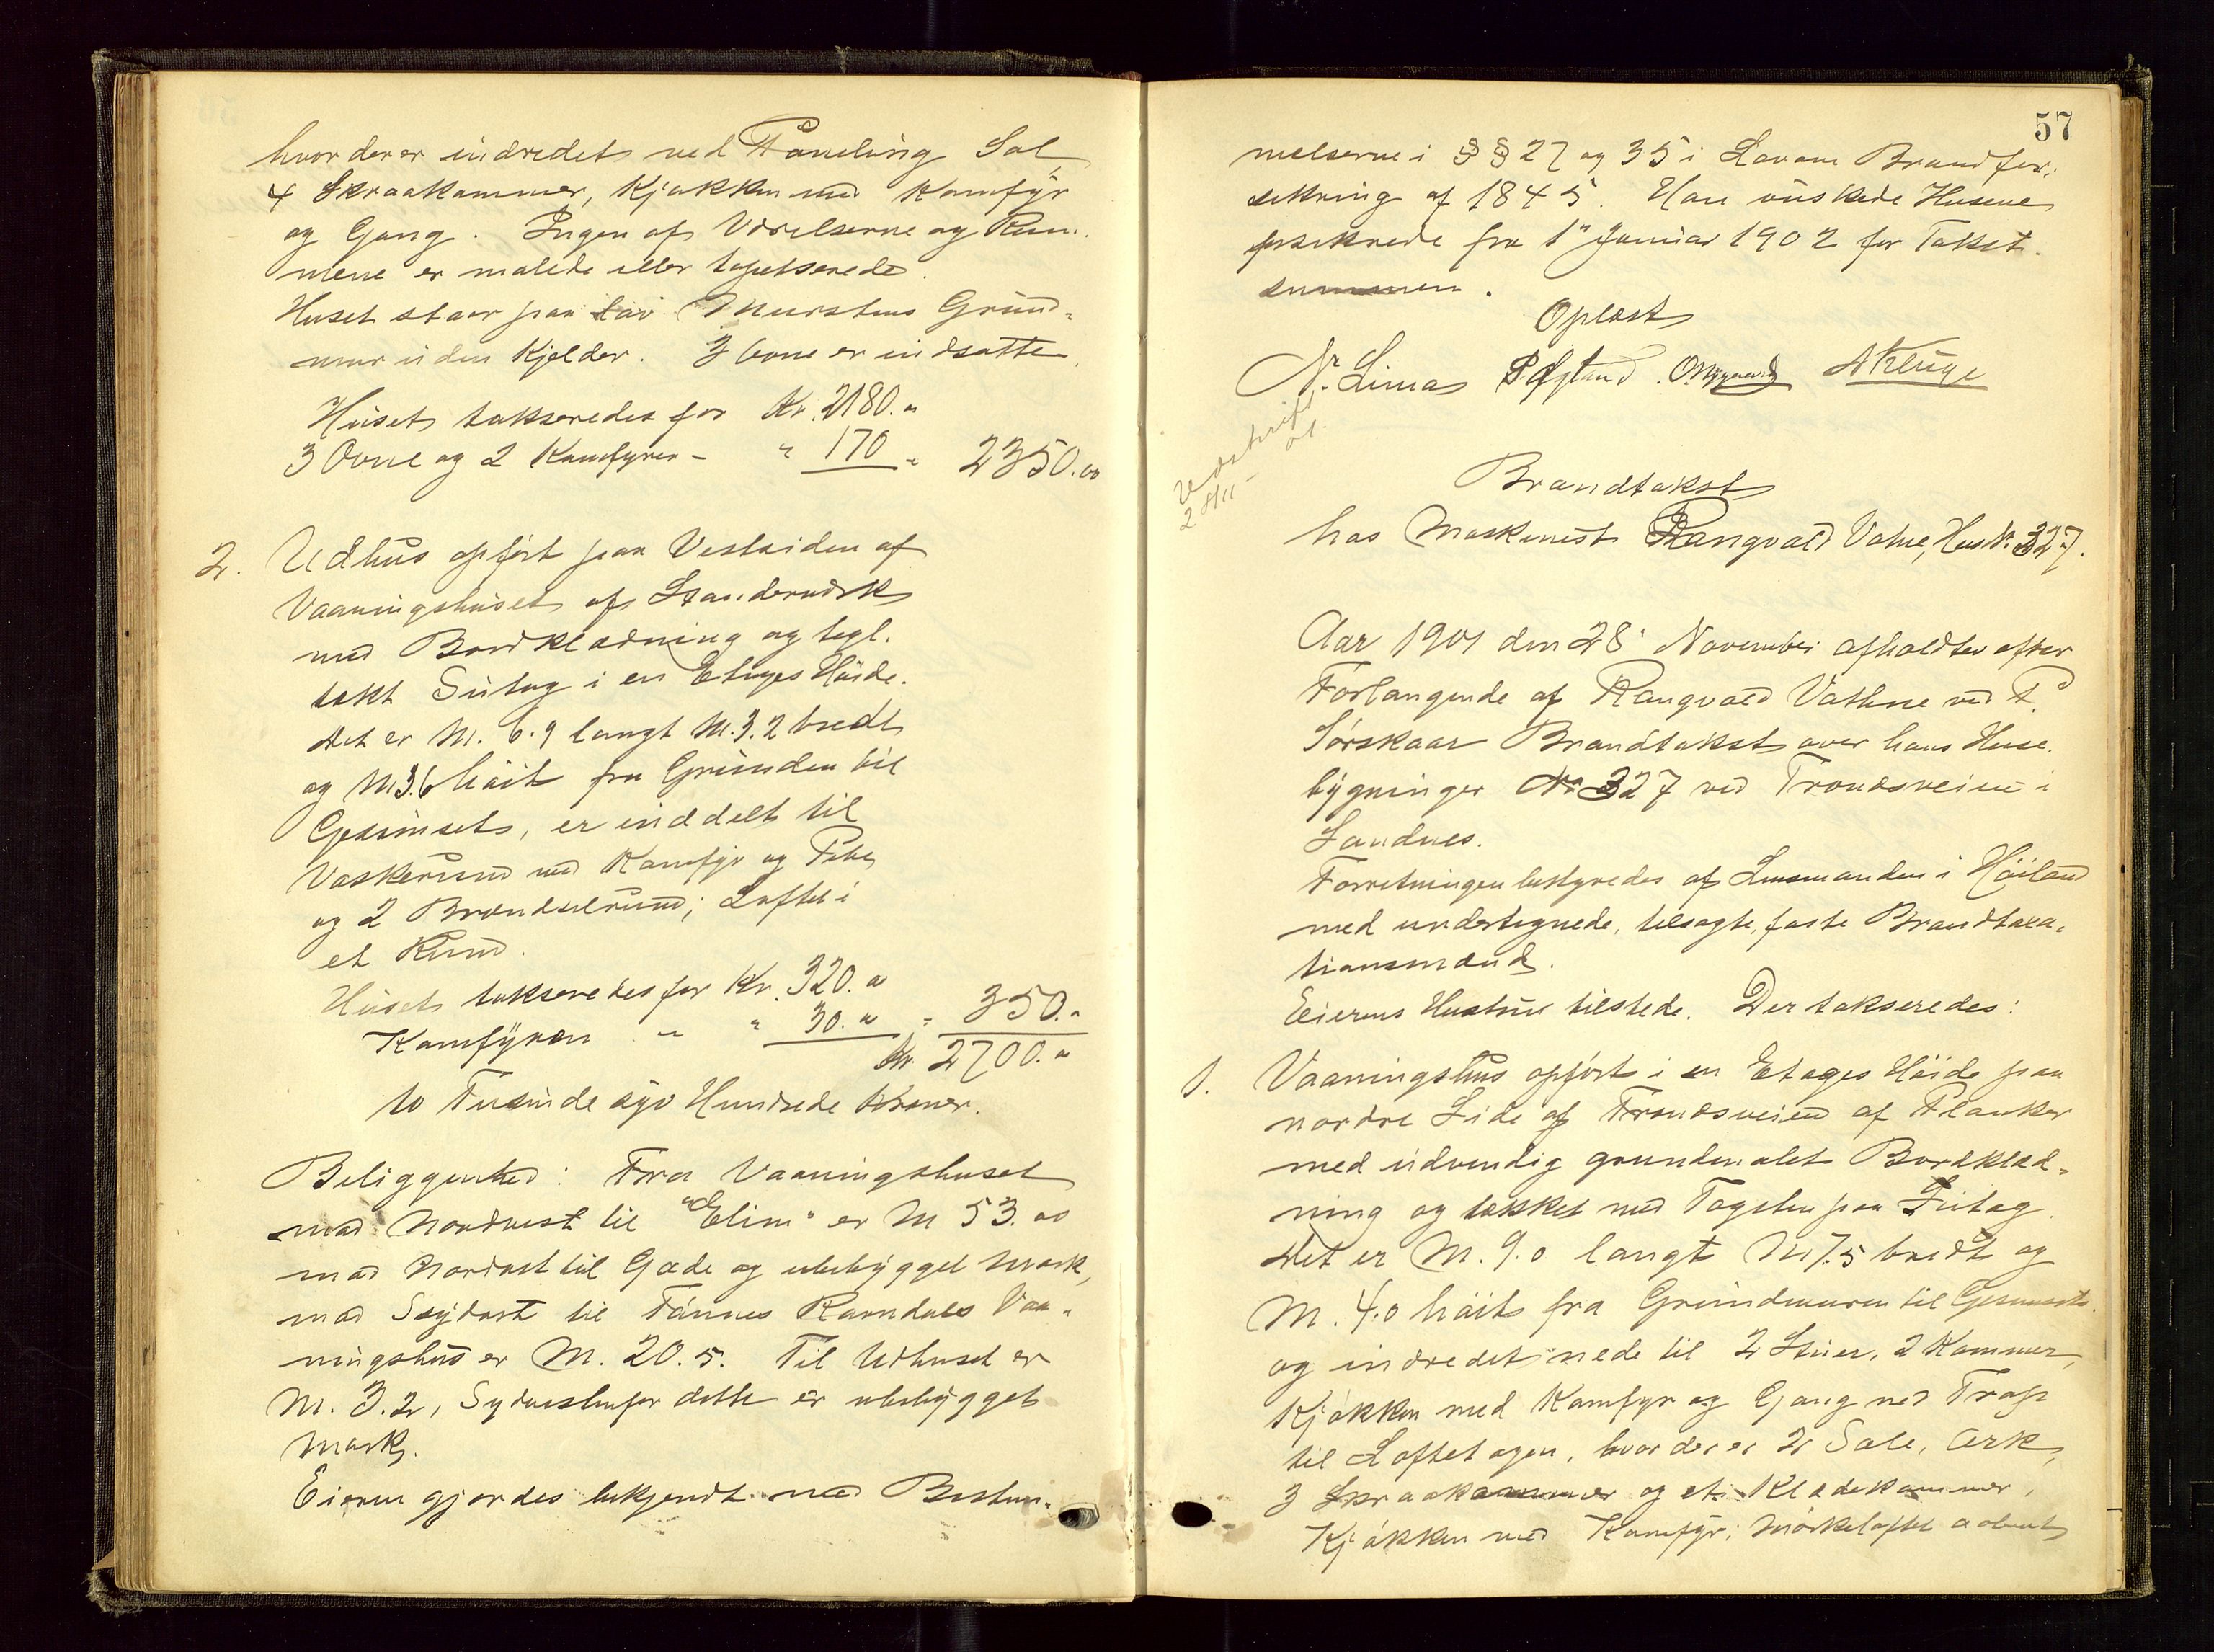 hvor der er indredet ved Paneling Sal
4 Skraakammer, Kjøkken med Komfyr
og Gang. Ingen af Værelserne og Rum-
mene er malede eller tapetserede.
Huset staar paa lav Murstens Grund-
mur uden Kjelder. 3 Ovne er indsatte
Huset takseredes for Kr. 2180. "
3 Ovne og 2 Komfyrer - " 170 " 2350.00
2. Udhus opført paa Vestsiden af
Vaaningshuset af Standerværk
med Bordklædning og tegl-
tækt Sutag i en Etages Høide.
Det er M. 6.9 langt M. 3.2 bredt
og M 3.6 høit fra Grunden til
Gesimset, er inddelt til
Vaskerum med Komfyr og Pibe
og 2 Brændselrum; Loftet i
et Rum.
Huset takseredes for Kr. 320. "
Komfyren - " 30. " - 350. "
Kr. 2700. "
to Tusinde syv Hundrede Kroner.
Beliggenhed: Fra Vaaningshuset
mod Nordvest til "Elim" er M 53.00
mod Nordost til Gade og ubebygget Mark,
mod Sydost til Tønnes Ravndals Vaa-
ningshus er M. 20.5. Til Udhuset er
M. 3.2, Sydvestenfor dette er ubebygget
Mark.
Eieren gjordes bekjendt med Bestem-
57
melserne i §§ 27 og 35 i Lov om Brandfor-
sikring af 1845. Han ønskede Husene
forsikrede fra 1" Januar 1902 for Takst-
summen.
Oplæst
N. Lima
Udskrift
28/11 - 01.
Brandtakst
hos Maskinist Rangvald Vatne, Hus No 327.
Aar 1901 den 28' November afholdtes efter
Forlangende af Rangvald Vathne ved P.
Sørskaar Brandtakst over hans Huse-
bygninger No 327 ved Trondsveien i
Sandnes.
Forretningen bestyredes af Lensmanden i Høiland
med undertegnede, tilsagte, faste Brandtaxa-
tionsmænd.
Eierens Hustru tilstede. Der takseredes:
1. Vaaningshus opført i en Etages Høide paa
nordre Side af Trondsveien af Planker
med udvendig grundmalet Bordklæd-
ning og tækket med Tagsten paa Sutag.
Det er M. 9.0 langt M 7.5 bredt og
M. 4.0 høit fra Grundmuren til Gesimset
og indredet nede til 2 Stuer, 2 Kammer,
Kjøkken med Komfyr og Gang med Trap
til Loftetagen, hvor der er 2 Sale, Ark,
3 Skraakammer og et Klædekammer,
Kjøkken med Komfyr; Mørkeloftet aabent